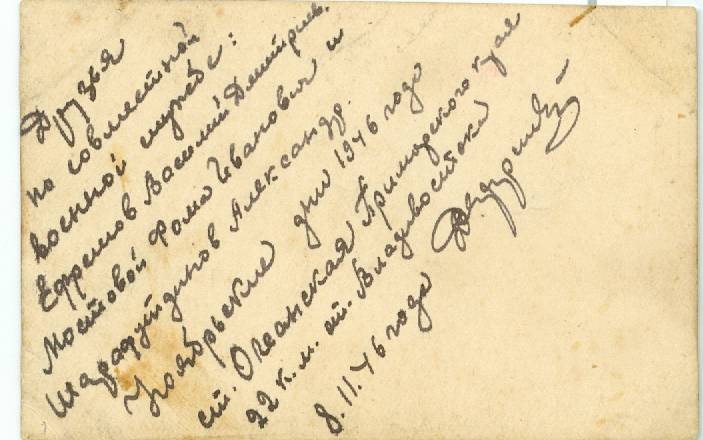 Друзья
по совместной
военной службе:
Ефремов Василий Дмитриев.
Мостовой Фома Иванович и
Шарафутдинов Александр.
Ноябрьские дни 1946 года
ст. Океанская Приморского края
22 к.м. от. Владивостока
8.11.46 года